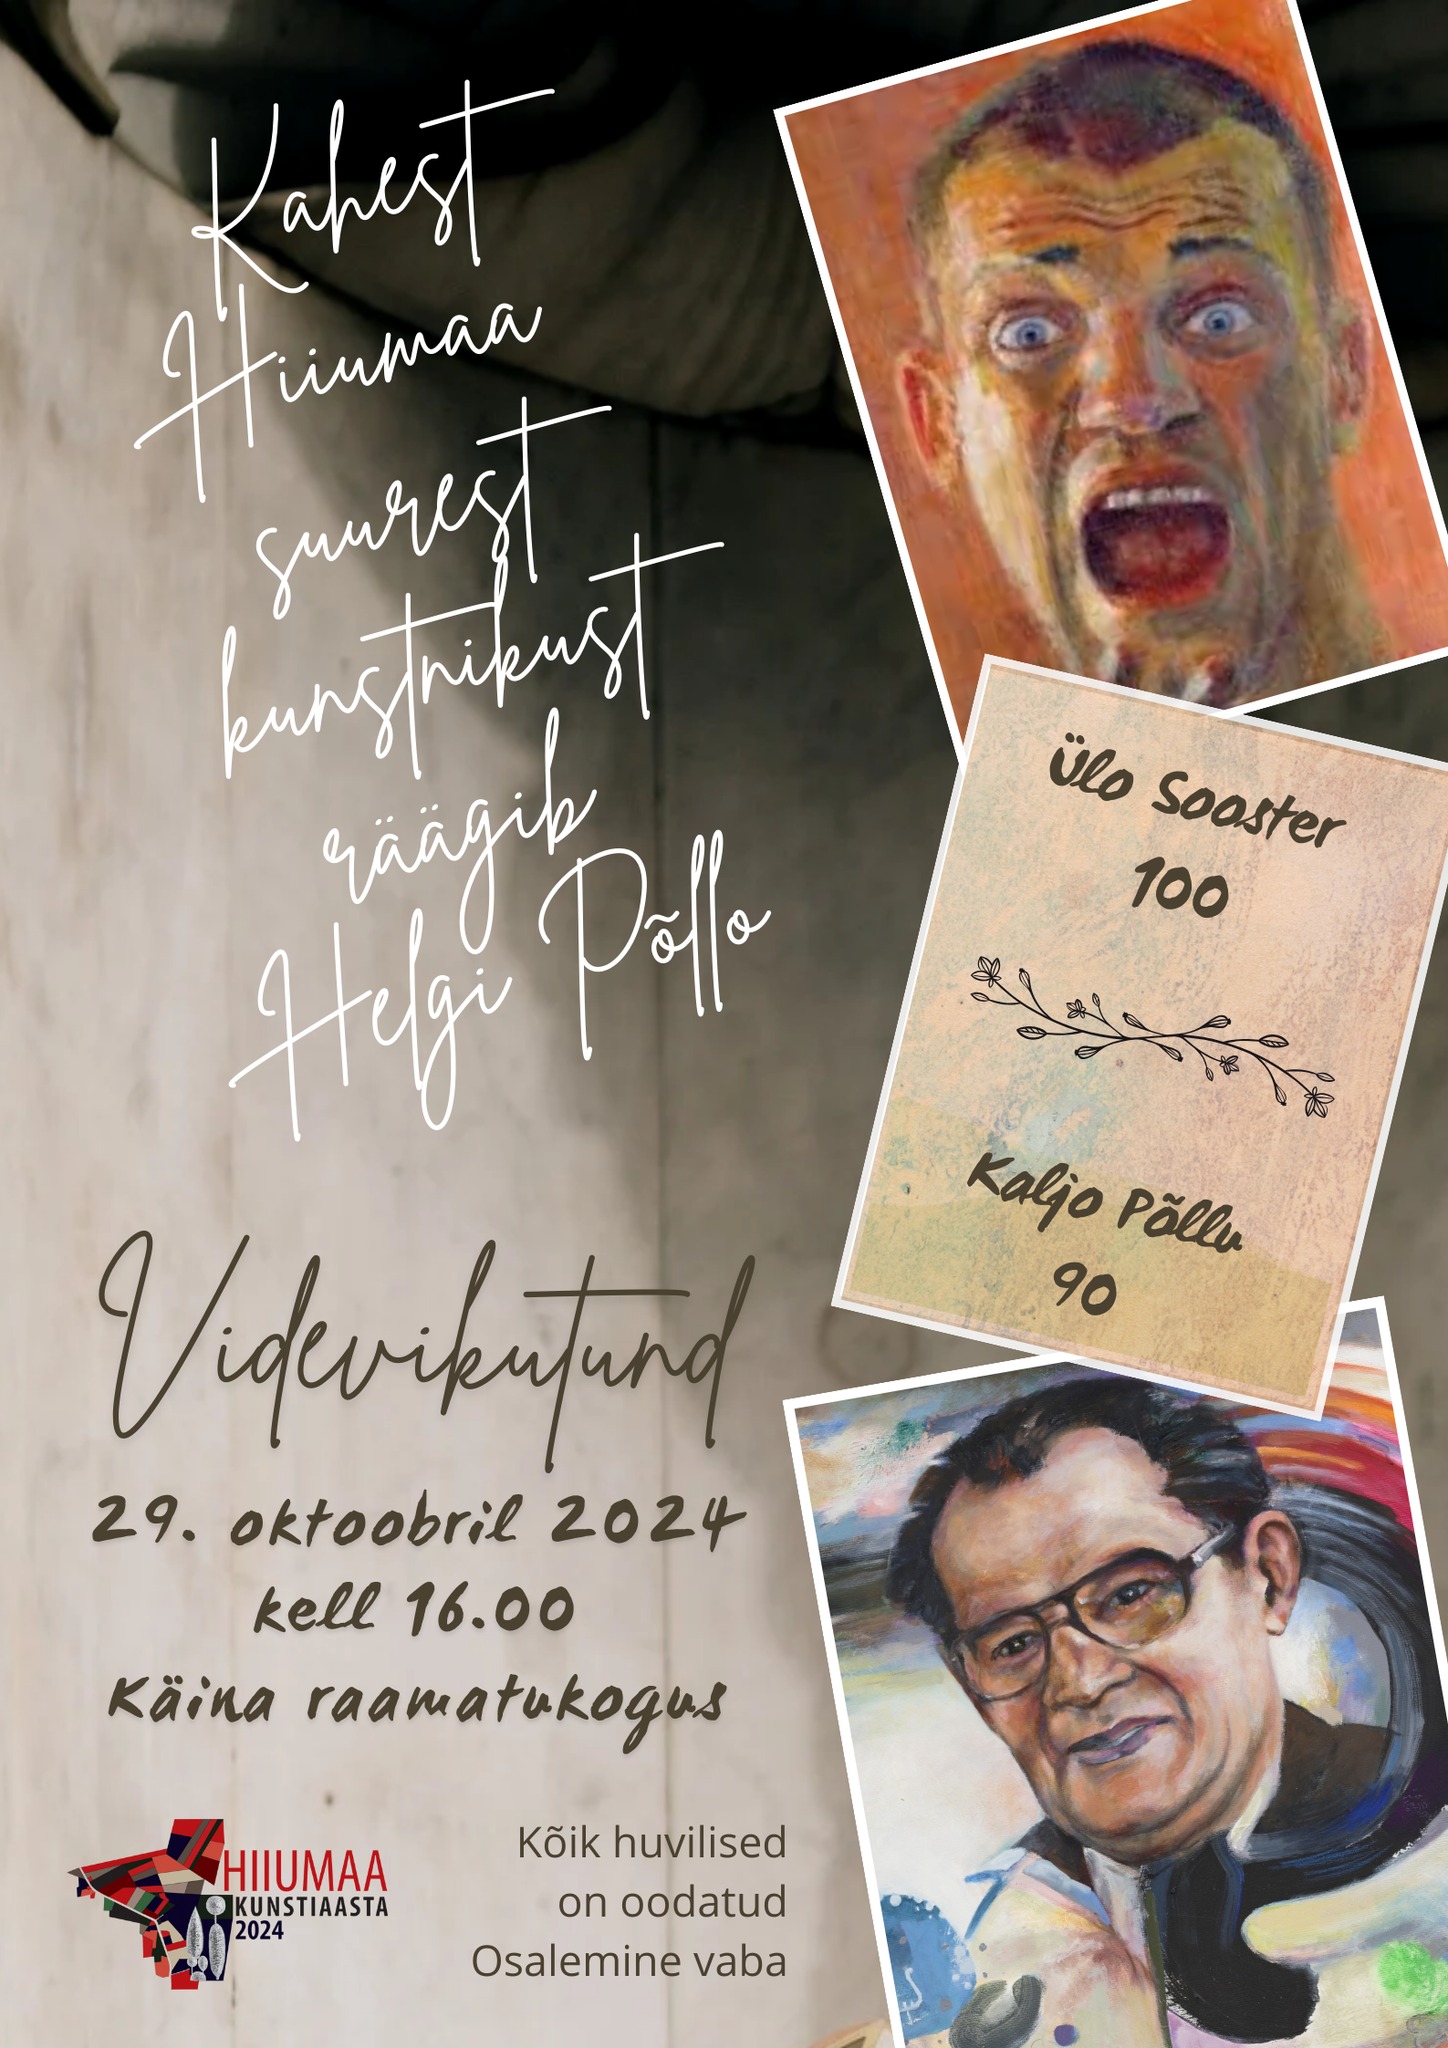 Kahest
Hiiumaa
suurest
kunstnikust
räägib
Helgi Põllo
Ülo Sooster
100
Kaljo Põllu
90
Videvikutund
29. oktoobril 2024
kell 16.00
Käina raamatukogus
HIIUMAA
KUNSTIAASTA
2024
Kõik huvilised
on oodatud
Osalemine vaba